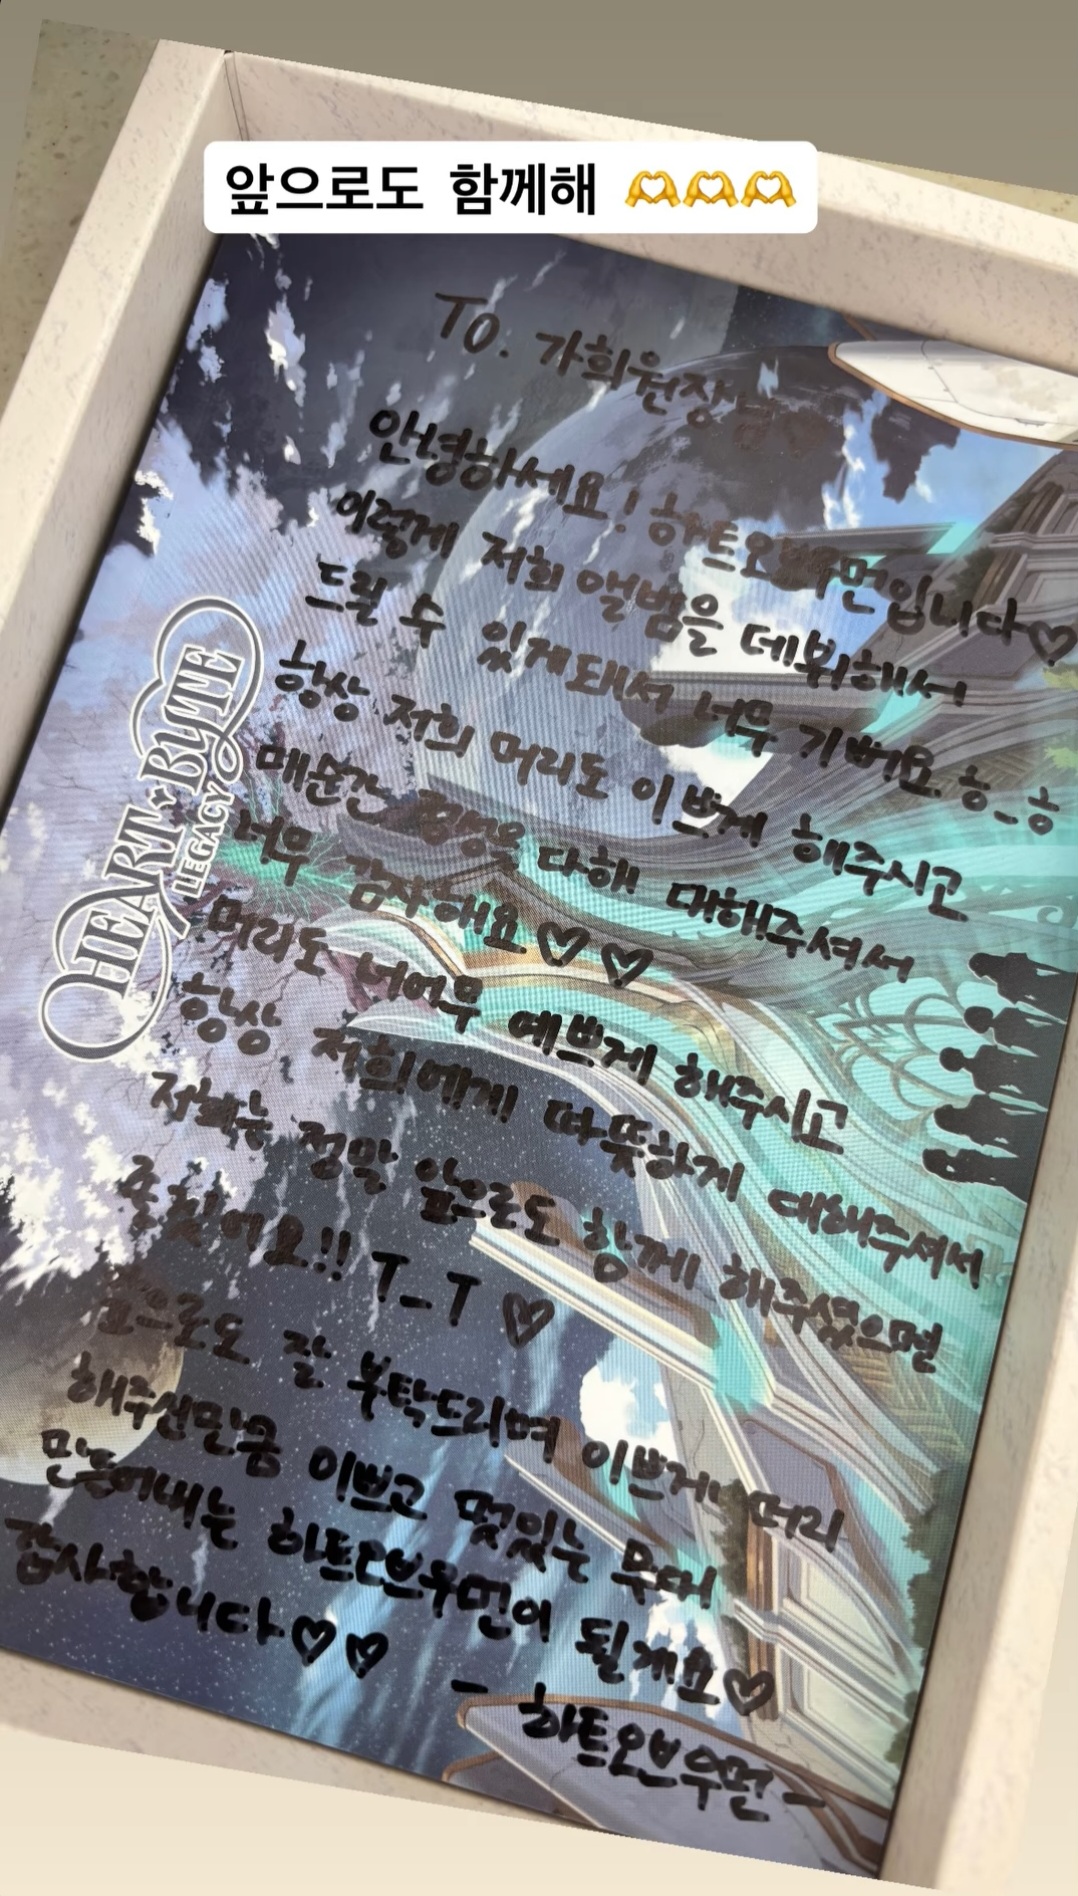 앞으로도 함께해 🫶🫶🫶
TO. 가희원장님♡
안녕하세요! 하트오브우먼입니다♡
이렇게 저희 앨범을 데뷔해서
드릴 수 있게돼서 너무 기뻐요 ㅎ_ㅎ
항상 저희 머리도 이쁘게 해주시고
매순간 정성을 다해 대해주셔서
너무 감사해요♡♡
머리도 너어무 예쁘게 해주시고
항상 저희에게 따뜻하게 대해주셔서
저희는 정말 앞으로도 함께 해주셨으면
좋겠어요!! T_T ♡
앞으로도 잘 부탁드리며 이쁘게 머리
해주신만큼 이쁘고 멋있는 무대
만들어내는 하트오브우먼이 될게요♡
감사합니다♡♡
- 하트오브우먼 -
HEART BYTE
LEGACY